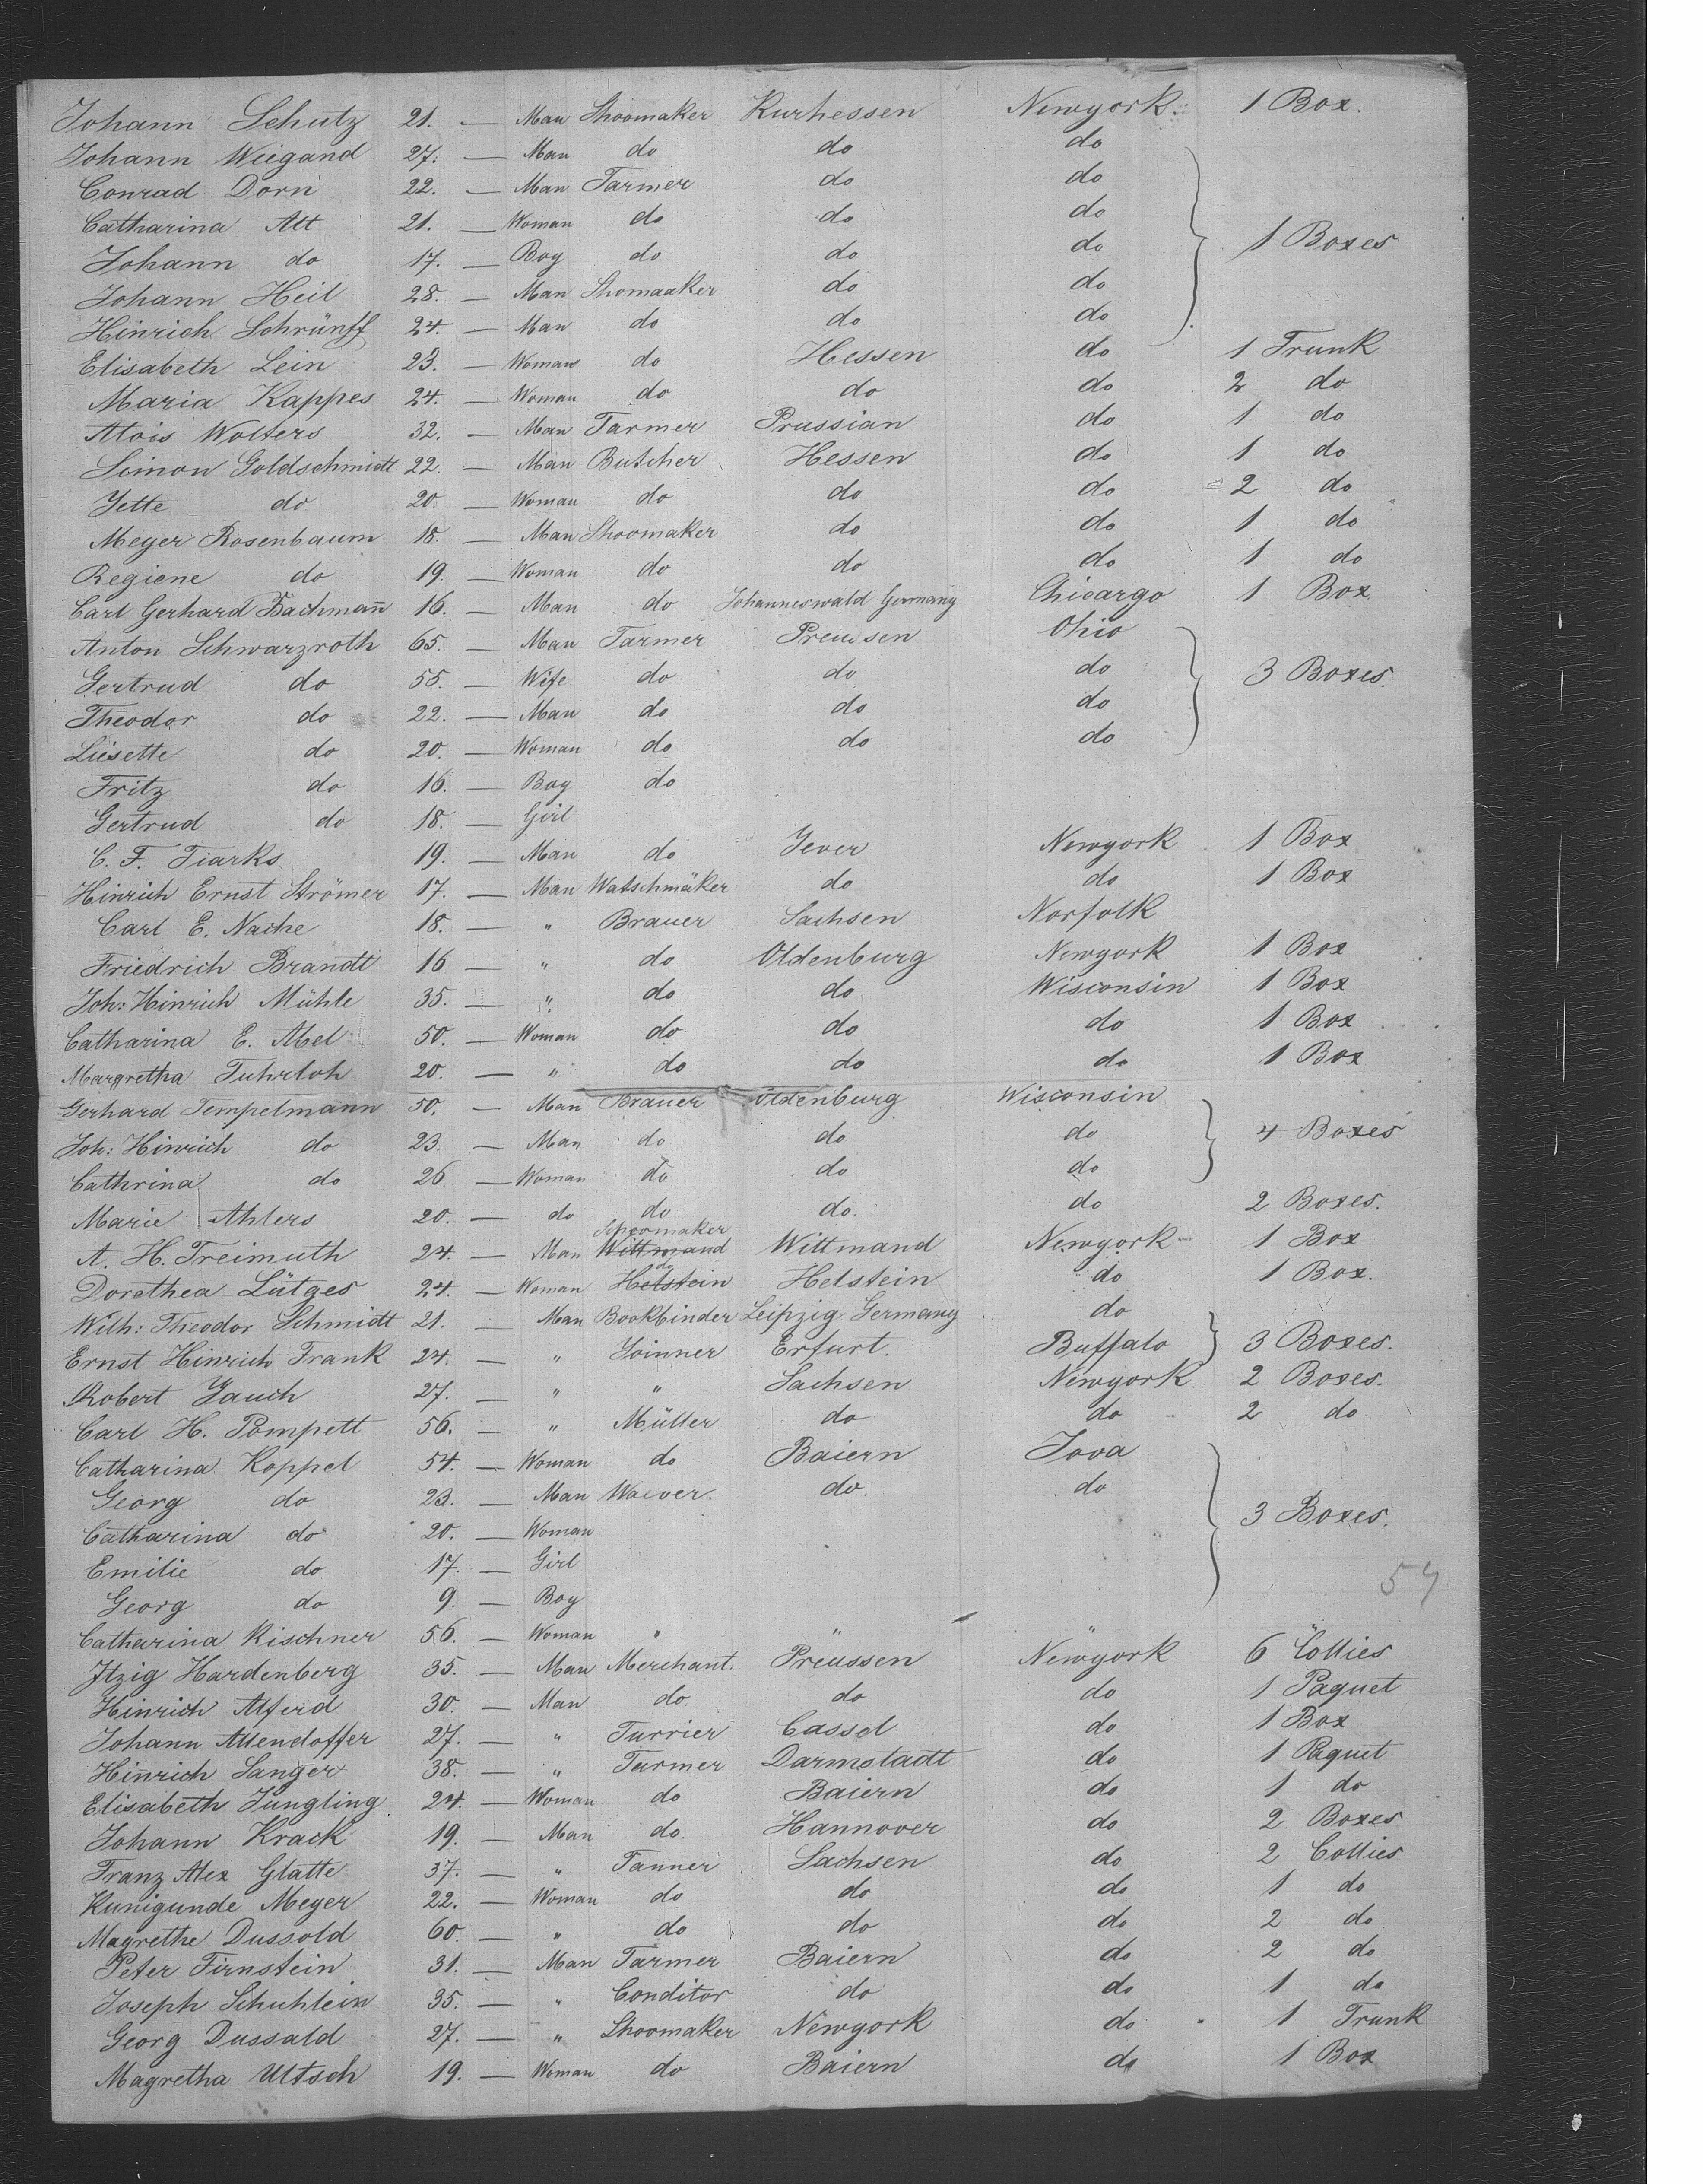 Johann Schutz 21. — Man Shoomaker Kurhessen Newyork 1 Box.
Johann Wiegand 27. — Man do do do
Conrad Dorn 22. — Man Farmer do do
Catharina Alt 21. — Woman do do do
Johann do 17. — Boy do do do 1 Boxes
Johann Heil 28. — Man Shomaaker do do
Hinrich Schrünff 24. — Man do do do
Elisabeth Lein 23. — Woman do Hessen do 1 Trunk
Maria Kappes 24. — Woman do do do 2 do
Alois Wolters 32. — Man Farmer Prussian do 1 do
Simon Goldschmidt 22. — Man Butcher Hessen do 1 do
Jette do 20. — Woman do do do 2 do
Meyer Rosenbaum 18. — Man Shoomaker do do 1 do
Regiene do 19. — Woman do do do 1 do
Carl Gerhard Bachmañ 16. — Man do Johanneswald Germany Chicargo 1 Box
Anton Schwarzroth 65. — Man Farmer Preussen Ohio
Gertrud do 55. — Wife do do do 3 Boxes.
Theodor do 22. — Man do do do
Liesette do 20. — Woman do do do
Fritz do 16. — Boy do
Gertrud do 18. — Girl
C. F. Tiarks 19. — Man do Jever Newyork 1 Box
Hinrich Ernst Strömer 17. — Man Watschmäker do do 1 Box
Carl E. Nache 18. — " Brauer Sachsen Norfolk
Friedrich Brandt 16 — " do Oldenburg Newyork 1 Box
Joh: Hinrich Mühle 35. — " do do Wisconsin 1 Box
Catharina E. Abel 50. — Woman do do do 1 Box
Margretha Fuhrloh 20. — " do do do 1 Box
Gerhard Tempelmann 50. — Man Brauer Oldenburg Wisconsin
Joh: Hinrich do 23. — Man do do do 4 Boxes
Cathrina do 26 — Woman do do do
Marie Ahlers 20. — do do do. do 2 Boxes.
A. H. Freimuth 24. — Man Wittmand Schoomaker Wittmand Newyork 1 Box
Dorethea Lütges 24. — Woman Helstein do Helstein do 1 Box.
Wilh: Theodor Schmidt 21. — Man Bookbinder Leipzig Germany do
Ernst Hinrich Frank 24. — " Joinner Erfurt. Buffalo 3 Boxes.
Robert Jauch 27. — " " Sachsen Newyork 2 Boxes.
Carl H. Pompett 56. — " Müller do do 2 do
Catharina Koppel 54. — Woman do Baiern Jova
Georg do 23. — Man Waever. do do
Catharina do 20. — Woman 3 Boxes.
Emilie do 17. — Girl
Georg do 9. — Boy 57
Catharina Kischner 56. — Woman " " "
Jtzig Hardenberg 35. — Man Merchant. Preussen Newyork 6 Collies
Hinrich Alferd 30. — Man do do do 1 Paquet
Johann Allendoffer 27. — " Furrier Cassel do 1 Box
Hinrich Sanger 38. — " Farmer Darmstadt do 1 Paquet
Elisabeth Jungling 24. — Woman do Baiern do 1 do
Johann Krack 19. — Man do. Hannover do 2 Boxes
Franz Alex Glatte 37. — " Tanner Sachsen do 2 Collies
Kunigunde Meyer 22. — Woman do do do 1 do
Magrethe Dussold 60. — " do do do 2 do
Peter Firnstein 31. — Man Farmer Baiern do 2 do
Joseph Schuhlein 35. — " Conditor do do 1 do
Georg Dussald 27. — " Shoomaker Newyork do 1 Trunk
Magretha Ultsch 19. — Woman do Baiern do 1 Box